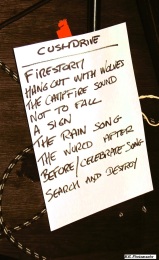 CUSHDRIVE
FIRESTORY
HANG OUT WITH WOLVES
THE CAMPFIRE SOUND
NOT TO FALL
A SIGN
THE RAIN SONG
THE WORLD AFTER
BEFORE/CELEBRATE SONG
SEARCH AND DESTROY